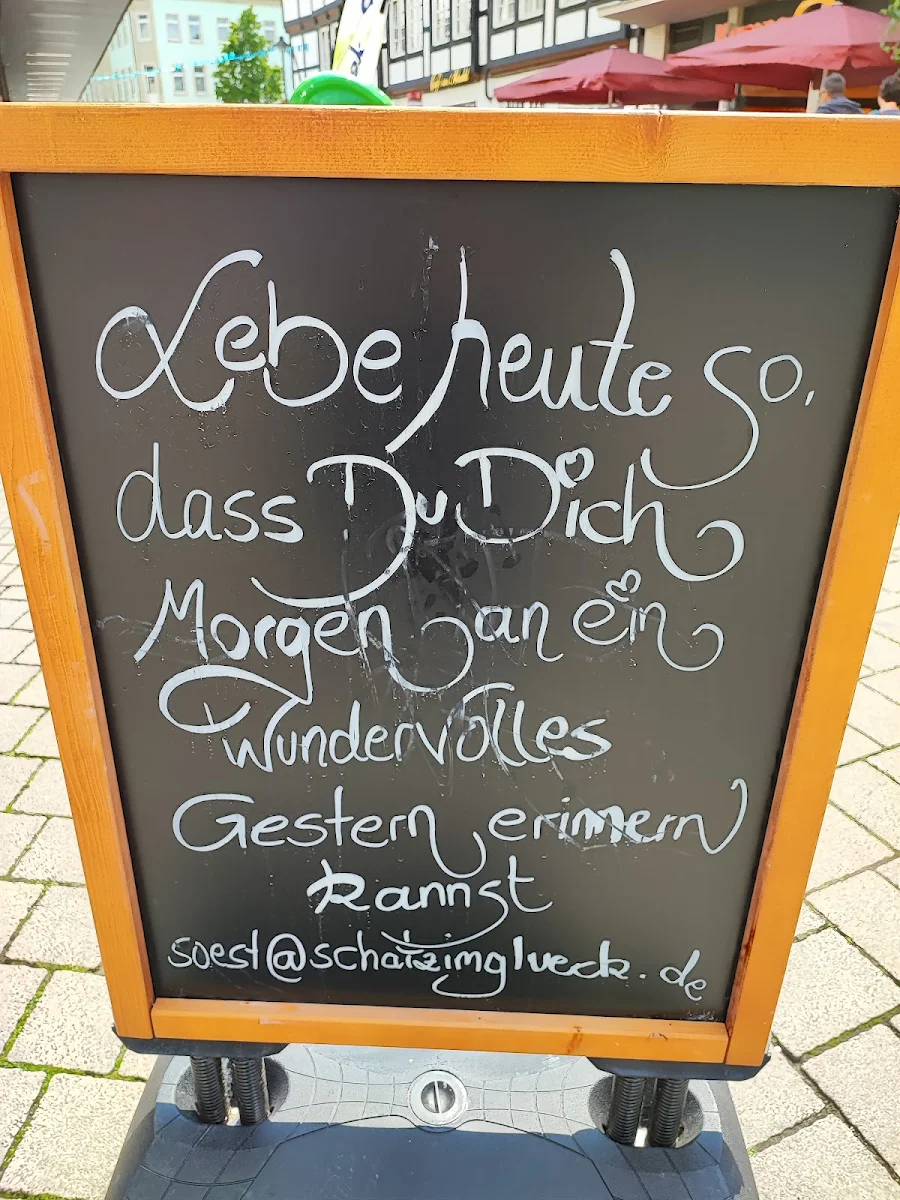 Lebe heute so,
dass Du Dich
Morgen an ein
wundervolles
Gestern erinnern
kannst
soest@schatzimglueck.de